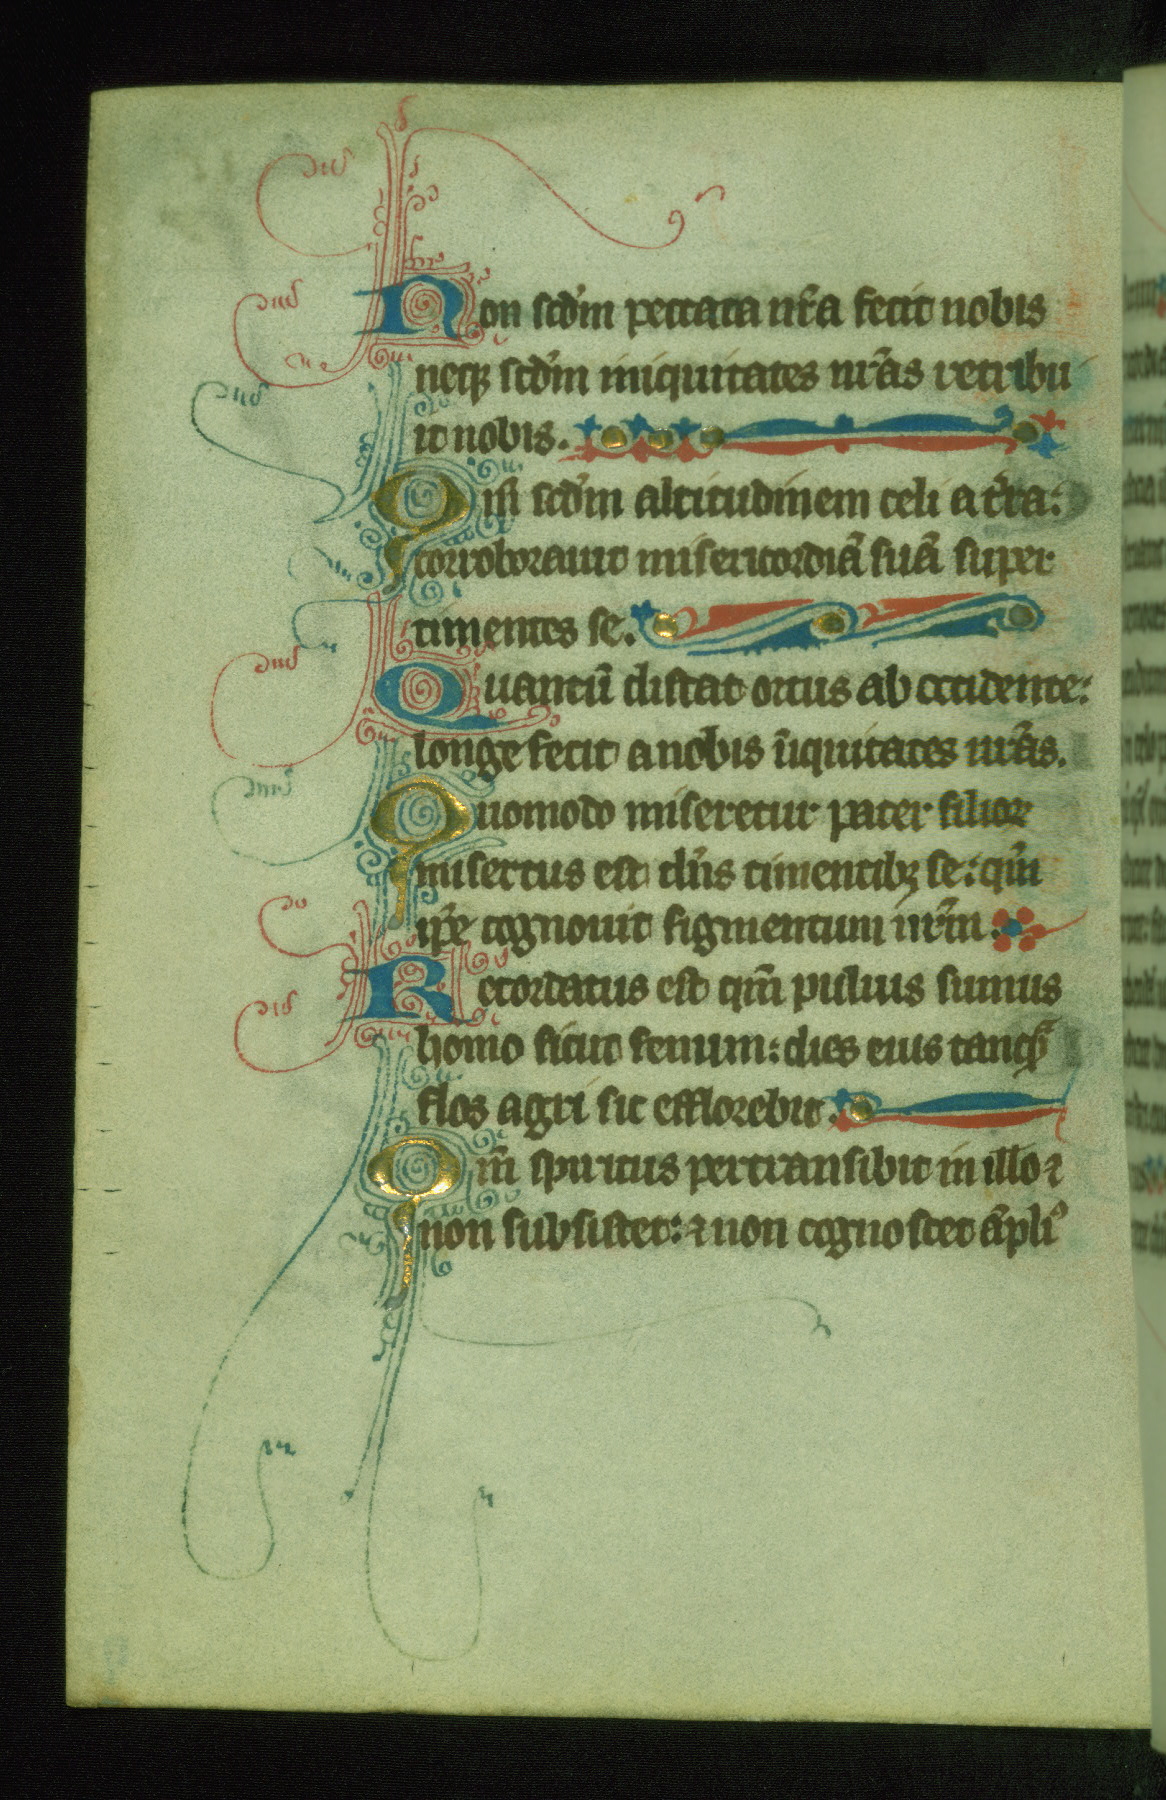 Non scd̄m peccata nr̄a fecit nobis
neq̢ scd̄m iniquitates nr̄as retribu
it nobis.
Qm̄ scd̄m altitudinem celi a tr̄ra:
corroborauit misericordiā suā super
timentes se.
Quantū distat ortus ab occidente:
longe fecit a nobis īiquitates nr̄as.
Quomodo miseretur pater filioꝝ
misertus est dn̄s timentibꝫ se: qm̄
ip̄e cognouit figmentum nr̄m.
Recordatus est qm̄ puluis sumus
homo sicut fenum: dies eius tanqͣ̄
flos agri sic efflorebit.
Qm̄ spiritus pertransibit in illo ⁊
non subsistet: ⁊ non cognoscet āpliꝰ